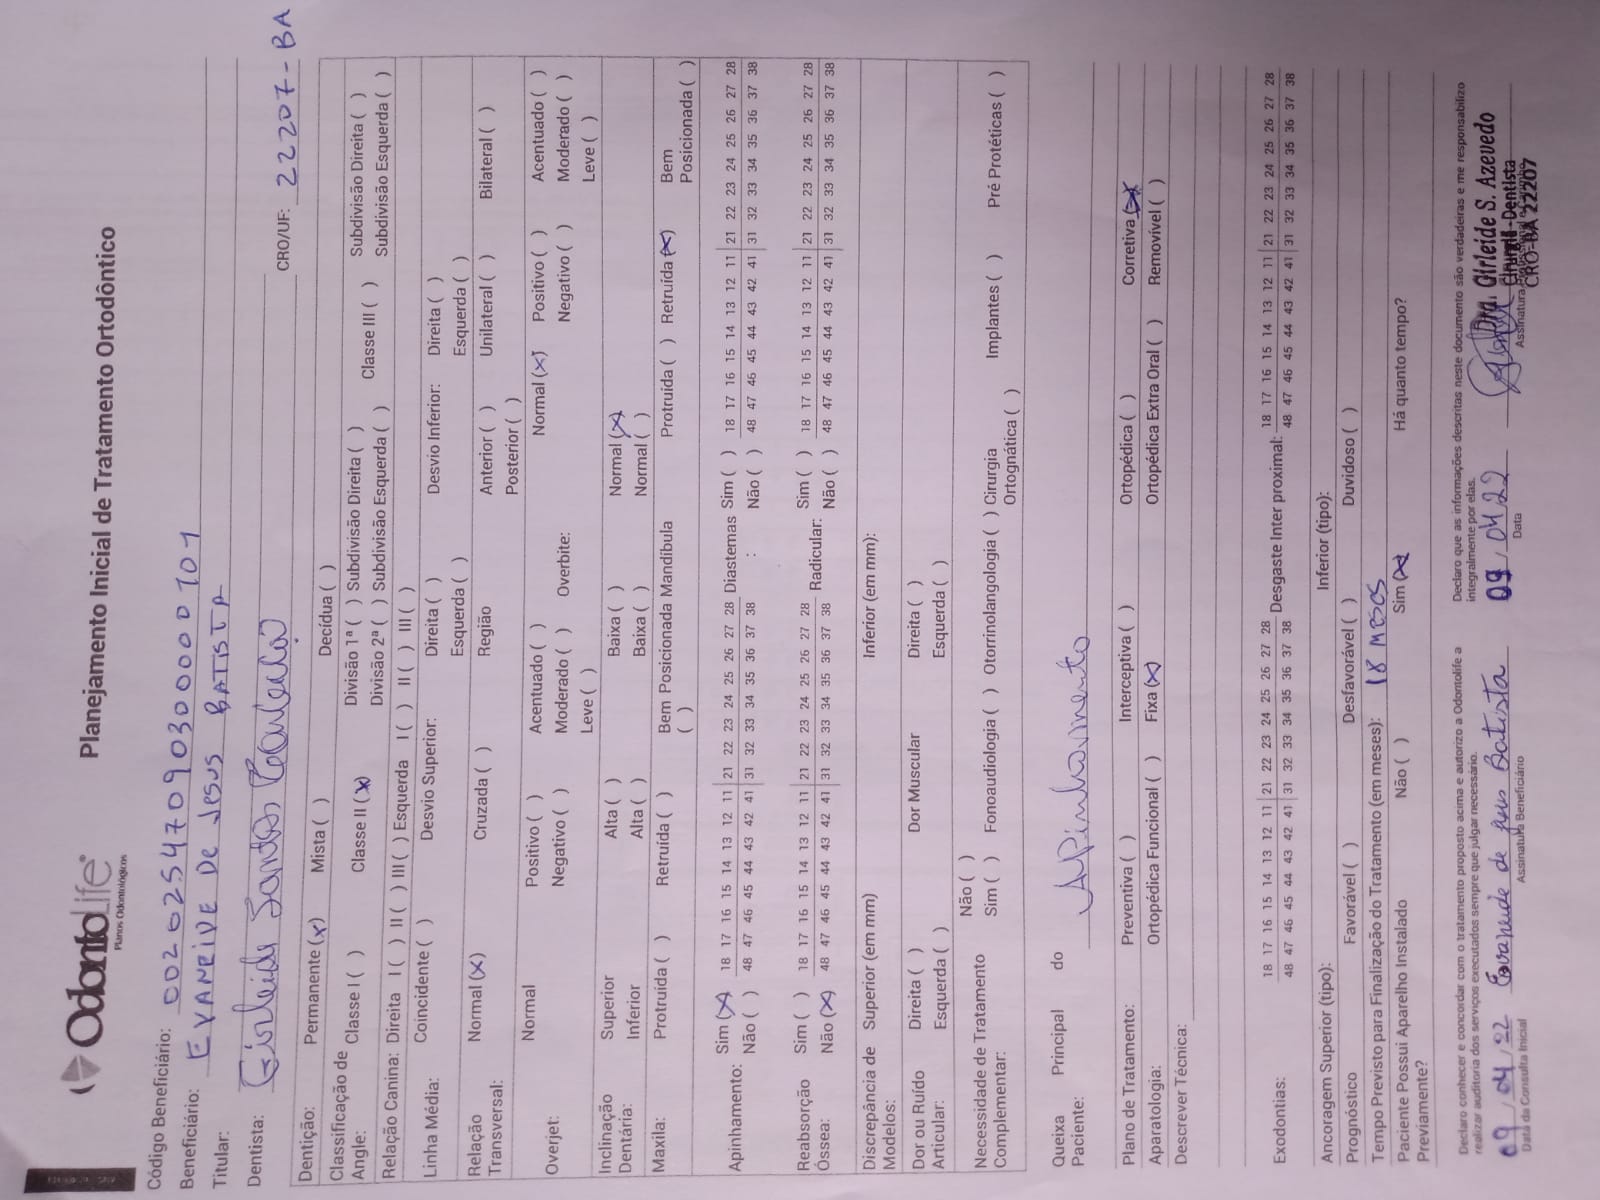 OdontoLife®
Planos Odontológicos
Planejamento Inicial de Tratamento Ortodôntico
Código Beneficiário: 00202547090300000101
Beneficiário: EVANEIVE DE JESUS BATISTA
Titular:
Dentista: Girleide Santos CRO/UF: 22207-BA
Dentição: Permanente (x) Mista ( ) Decídua ( )
Classificação de Angle: Classe I ( ) Classe II (x) Divisão 1ª ( ) Subdivisão Direita ( ) Classe III ( ) Subdivisão Direita ( )
Divisão 2ª ( ) Subdivisão Esquerda ( ) Subdivisão Esquerda ( )
Relação Canina: Direita I ( ) II ( ) III ( ) Esquerda I ( ) II ( ) III ( )
Linha Média: Coincidente ( ) Desvio Superior: Direita ( ) Desvio Inferior: Direita ( )
Esquerda ( ) Esquerda ( )
Relação Transversal: Normal (x) Cruzada ( ) Região Anterior ( ) Unilateral ( ) Bilateral ( )
Posterior ( )
Overjet: Normal Positivo ( ) Acentuado ( ) Overbite: Normal (x) Positivo ( ) Acentuado ( )
Negativo ( ) Moderado ( ) Negativo ( ) Moderado ( )
Leve ( ) Leve ( )
Inclinação Dentária: Superior Alta ( ) Baixa ( ) Normal (x)
Inferior Alta ( ) Baixa ( ) Normal ( )
Maxila: Protruida ( ) Retruída ( ) Bem Posicionada ( ) Mandibula Protruida ( ) Retruida (x) Bem Posicionada ( )
Apinhamento: Sim (x) 18 17 16 15 14 13 12 11 | 21 22 23 24 25 26 27 28 Diastemas : Sim ( ) 18 17 16 15 14 13 12 11 | 21 22 23 24 25 26 27 28
Não ( ) 48 47 46 45 44 43 42 41 | 31 32 33 34 35 36 37 38 Não ( ) 48 47 46 45 44 43 42 41 | 31 32 33 34 35 36 37 38
Reabsorção Óssea: Sim ( ) 18 17 16 15 14 13 12 11 | 21 22 23 24 25 26 27 28 Radicular: Sim ( ) 18 17 16 15 14 13 12 11 | 21 22 23 24 25 26 27 28
Não (x) 48 47 46 45 44 43 42 41 | 31 32 33 34 35 36 37 38 Não ( ) 48 47 46 45 44 43 42 41 | 31 32 33 34 35 36 37 38
Discrepância de Modelos: Superior (em mm) Inferior (em mm):
Dor ou Ruído Articular: Direita ( ) Dor Muscular Direita ( )
Esquerda ( ) Esquerda ( )
Necessidade de Tratamento Complementar: Não ( )
Sim ( ) Fonoaudiologia ( ) Otorrinolangologia ( ) Cirurgia Ortognática ( ) Implantes ( ) Pré Protéticas ( )
Queixa Principal do Paciente: Apinhamento
Plano de Tratamento: Preventiva ( ) Interceptiva ( ) Ortopédica ( ) Corretiva (x)
Aparatologia: Ortopédica Funcional ( ) Fixa (x) Ortopédica Extra Oral ( ) Removível ( )
Descrever Técnica:
Exodontias: 18 17 16 15 14 13 12 11 | 21 22 23 24 25 26 27 28 Desgaste Inter proximal: 18 17 16 15 14 13 12 11 | 21 22 23 24 25 26 27 28
48 47 46 45 44 43 42 41 | 31 32 33 34 35 36 37 38 48 47 46 45 44 43 42 41 | 31 32 33 34 35 36 37 38
Ancoragem Superior (tipo): Inferior (tipo):
Prognóstico Favorável ( ) Desfavorável ( ) Duvidoso ( )
Tempo Previsto para Finalização do Tratamento (em meses): 18 meses
Paciente Possui Aparelho Instalado Previamente? Não ( ) Sim (x) Há quanto tempo?
Declaro conhecer e concordar com o tratamento proposto acima e autorizo a Odontolife a
realizar auditoria dos serviços executados sempre que julgar necessário.
Declaro que as informações descritas neste documento são verdadeiras e me responsabilizo
integralmente por elas.
09/04/22 de Jesus Batista 09/04/22
Data da Consulta Inicial Assinatura Beneficiário Data Assinatura
Dra. Girleide S. Azevedo
Cirurgiã-Dentista
CRO-BA 22207